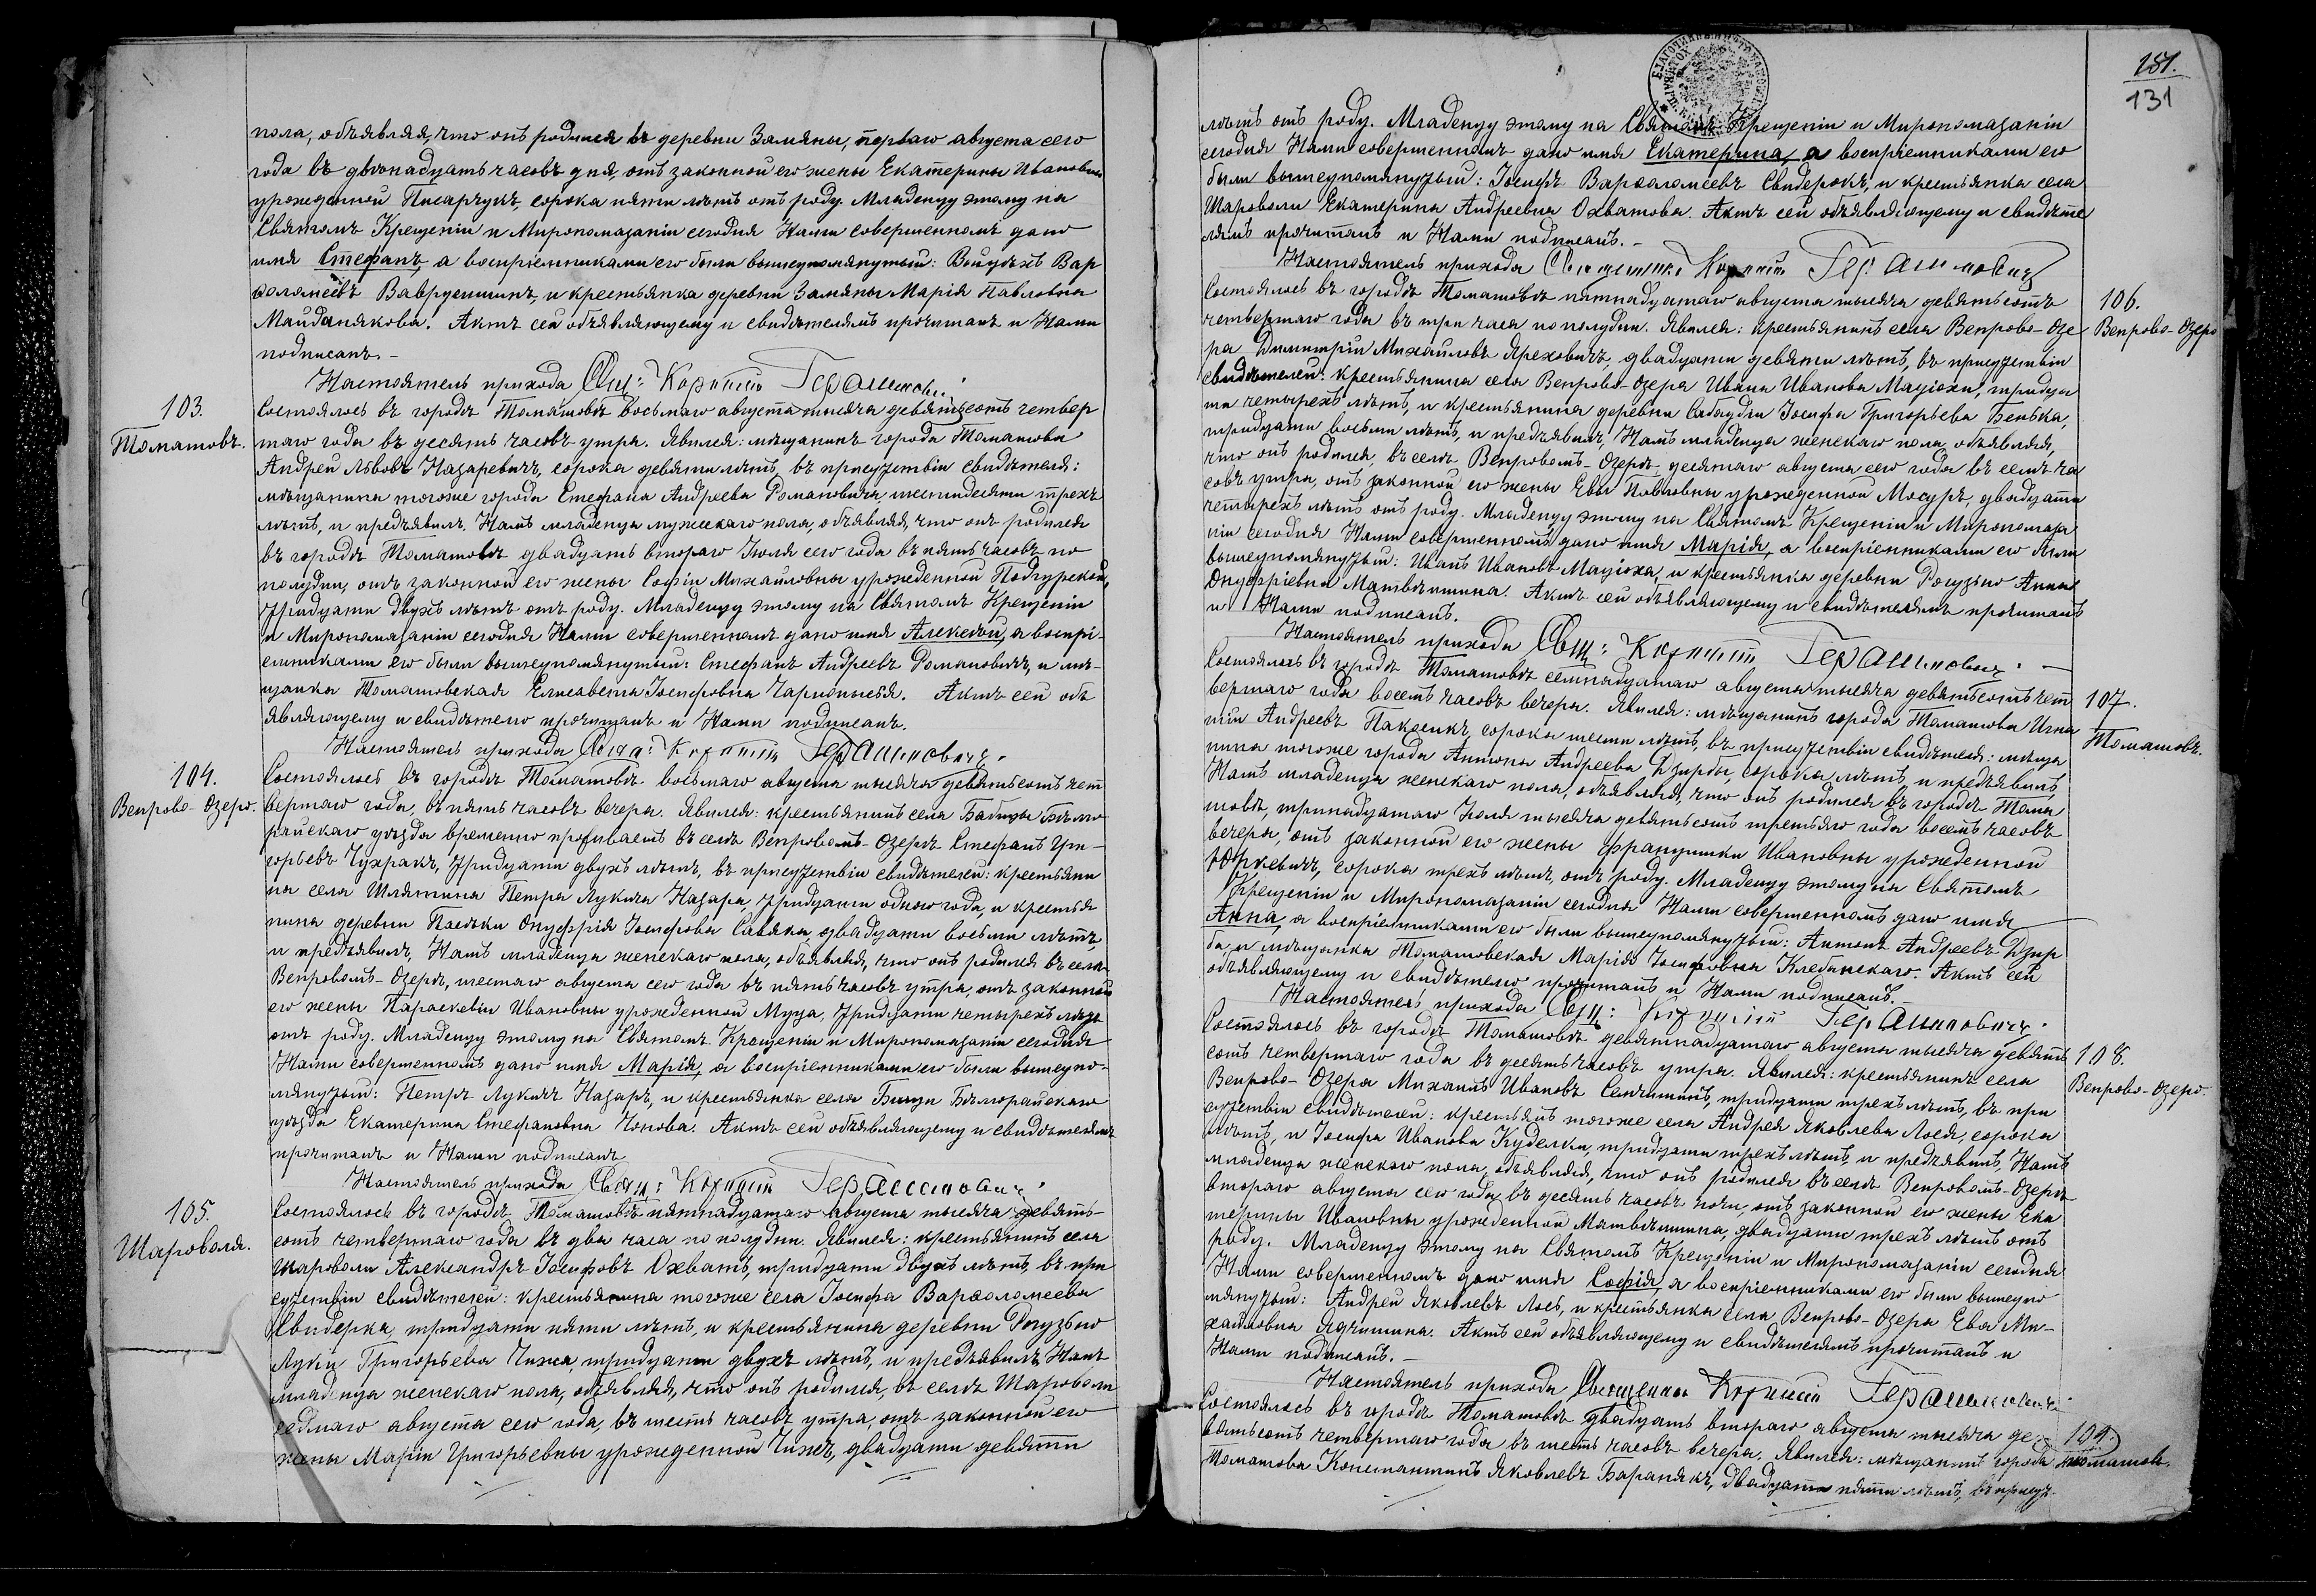 пола, объявляя, что онъ родился въ деревни Замяны, перваго августа сего
года въ двѣнадцать часовъ дня, отъ законной его жены Екатерины Ивановны
урожденной Писарчукъ, сорока пяти лѣтъ отъ роду. Младенцу этому на
Святомъ Крещеніи и Миропомазаніи сегодня Нами совершенномъ дано
имя Стефанъ, а воспріемниками его были вышеупомянутый: Войцѣхъ Вар
ѳоломеевъ Ваврусишинъ, и крестьянка деревни Замяны Марія Павловна
Майданякова. Актъ сей объявляющему и свидѣтелямъ прочитанъ и Нами
подписанъ. –
Настоятель прихода Свщ: Корнилій Герасимовичъ
103.
Томашовъ.
Состоялось въ городѣ Томашовѣ восьмаго августа тысяча девятьсотъ четвер
таго года въ десять часовъ утра. Явился: мѣщанинъ города Томашова
Андрей Львовъ Назаревичъ, сорока девяти лѣтъ, въ присутствіи свидѣтеля:
мѣщанина тогоже города Стефана Андреева Романовича шестидесяти трехъ
лѣтъ, и предъявилъ Намъ младенца мужскаго пола, объявляя, что онъ родился
въ городѣ Томашовѣ двадцать втораго Іюля сего года въ пять часовъ по
полудни, отъ законной его жены Софіи Михайловны урожденной Подгурской,
тридцати двухъ лѣтъ отъ роду. Младенцу этому на Святомъ Крещеніи
и Миропомазаніи сегодня Нами совершенномъ дано имя Алексѣй, а воспрі-
емниками его были вышеупомянутый: Стефанъ Андреевъ Романовичъ, и мѣ-
щанка Томашовская Елисавета Іосифовна Чарнопысья. Актъ сей объ
являющему и свидѣтелю прочитанъ и Нами подписанъ.
Настоятель прихода Свщ: Корнилій Герасимовичъ.
104.
Венрово-Озеро.
Состоялось въ городѣ Томашовѣ восьмаго августа тысяча девятьсотъ чет
вертаго года, въ пять часовъ вечера. Явился: крестьянинъ села Бабицы Бѣлго
райскаго уѣзда временно проживаетъ въ селѣ Венровомъ-Озерѣ Стефанъ Гри-
горьевъ Чухракъ, тридцати двухъ лѣтъ, въ присутствіи свидѣтелей: крестьяни
на села Шлятина Петра Лукича Назара, тридцати одного года, и крестья
нина деревни Пасѣки Онуфрія Іосифова Савяка двадцати восьми лѣтъ,
и предъявилъ Намъ младенца женскаго пола, объявляя, что онъ родился въ селѣ
Венровомъ-Озерѣ, шестаго августа сего года въ пять часовъ утра, отъ законной
его жены Параскевіи Ивановны урожденной Муца, тридцати четырехъ лѣтъ
отъ роду. Младенцу этому на Святомъ Крещеніи и Миропомазаніи сегодня
Нами совершенномъ дано имя Марія, а воспріемниками его были вышеупо-
мянутый: Петръ Лукичъ Назаръ, и крестьянка села Бищи Бѣлгорайскаго
уѣзда Екатерина Стефановна Чопова. Актъ сей объявляющему и свидѣтелямъ
прочитанъ и Нами подписанъ
Настоятель прихода Свящ: Корнилій Герасимовичъ.
105.
Шароволя.
Состоялось въ городѣ Томашовѣ пятнадцатаго августа тысяча девять-
сотъ четвертаго года въ два часа по полудни. Явился: крестьянинъ села
Шароволи Александръ Іосифовъ Охватъ, тридцати двухъ лѣтъ, въ при
сутствіи свидѣтелей: крестьянина тогоже села Іосифа Варѳоломеева
Свидерка, тридцати пяти лѣтъ, и крестьянина деревни Рогузьно
Луки Григорьева Чижа, тридцати двухъ лѣтъ, и предъявилъ Намъ
младенца женскаго пола, объявляя, что онъ родился, въ селѣ Шароволи
седмаго августа сего года, въ шесть часовъ утра, отъ законной его
жены Маріи Григорьевны урожденной Чижъ, двадцати девяти
181.
131
лѣтъ отъ роду. Младенцу этому на Святомъ Крещеніи и Миропомазаніи
сегодня Нами совершенномъ дано имя Екатерина, а воспріемниками его
были вышеупомянутый: Іосифъ Варѳоломеевъ Свидерокъ, и крестьянка села
Шароволи Екатерина Андреевна Охватова. Актъ сей объявляющему и свидѣте
лямъ прочитанъ и Нами подписанъ. –
Настоятель прихода Священникъ Корнилій Герасимовичъ
106.
Венрово-Озеро
Состоялось въ городѣ Томашовѣ пятнадцатаго августа тысяча девятьсотъ
четвертаго года въ три часа по полудни. Явился: крестьянинъ села Венрово-Озе
ра Димитрій Михайловъ Яреховичъ, двадцати девяти лѣтъ, въ присутствіи
свидѣтелей: крестьянина села Венрово-Озера Ивана Иванова Маціохи, тридца
ти четырехъ лѣтъ, и крестьянина деревни Сабаудіи Іосифа Григорьева Венька,
тридцати восьми лѣтъ, и предъявилъ, Намъ младенца женскаго пола, объявляя,
что онъ родился, въ селѣ Венровомъ-Озерѣ, десятаго августа сего года въ семь ча
совъ утра, отъ законной его жены Евы Павловны урожденной Мосуръ, двадцати
четырехъ лѣтъ отъ роду. Младенцу этому на Святомъ Крещеніи и Миропомаза
ніи сегодня Нами совершенномъ дано имя Марія, а воспріемниками его были
вышеупомянутый: Иванъ Ивановъ Маціоха, и крестьянка деревни Рогузьно Анна
Онуфріевна Матвѣишина. Актъ сей объявляющему и свидѣтелямъ прочитанъ
и Нами подписанъ.
Настоятель прихода Свщ: Корнилій Герасимовичъ. –
107.
Томашовъ.
Состоялось въ городѣ Томашовѣ семнадцатаго августа тысяча девятьсотъ чет
вертаго года восемь часовъ вечера. Явился: мѣщанинъ города Томашова Игна
тій Андреевъ Паксенкъ, сорока шести лѣтъ, въ присутствіи свидѣтеля: мѣща
нина тогоже города Антона Андреева Дзирбы, сорока лѣтъ, и предъявилъ,
Намъ младенца женскаго пола, объявляя, что онъ родился въ городѣ Тома
шовѣ, тринадцатаго Іюля тысяча девятьсотъ третьяго года восемь часовъ
вечера, отъ законной его жены Францишки Ивановны урожденной
Юркевичъ, сорока трехъ лѣтъ, отъ роду. Младенцу этому на Святомъ
Крещеніи и Миропомазаніи сегодня Нами совершенномъ дано имя
Анна, а воспріемниками его были вышеупомянутый: Антонъ Андреевъ Дзир
ба, и мѣщанка Томашовская Марія Іосифовна Клебанскаго. Актъ сей
объявляющему и свидѣтелю прочитанъ и Нами подписанъ.
Настоятель прихода Свщ: Корнилій Герасимовичъ.
108.
Венрово-Озеро.
Состоялось въ городѣ Томашовѣ девятнадцатаго августа тысяча девять
сотъ четвертаго года въ десять часовъ утра. Явился: крестьянинъ села
Венрово-Озера Михаилъ Ивановъ Сенчишинъ, тридцати трехъ лѣтъ, въ при
сутствіи свидѣтелей: крестьянъ тогоже села Андрея Яковлева Лося, сорока
лѣтъ, и Іосифа Иванова Куделки, тридцати трехъ лѣтъ, и предъявилъ, Намъ
младенца женскаго пола, объявляя, что онъ родился въ селѣ Венровомъ-Озерѣ
втораго августа сего года въ десять часовъ ночи, отъ законной его жены Ека
терины Ивановны урожденной Матвѣишина, двадцати трехъ лѣтъ отъ
роду. Младенцу этому на Святомъ Крещеніи и Миропомазаніи сегодня
Нами совершенномъ дано имя Софія, а воспріемниками его были вышеупо
мянутый: Андрей Яковлевъ Лось, и крестьянка села Венрово-Озера Ева Ми-
хайловна Ядчишина. Актъ сей объявляющему и свидѣтелямъ прочитанъ и
Нами подписанъ. –
Настоятель прихода Священникъ Корнилій Герасимовичъ
109.
Томашовъ.
Состоялось въ городѣ Томашовѣ двадцать втораго августа тысяча де
вятьсотъ четвертаго года въ шесть часовъ вечера. Явился: мѣщанинъ города
Томашова Константинъ Яковлевъ Баранякъ, двадцати пяти лѣтъ, въ присут-